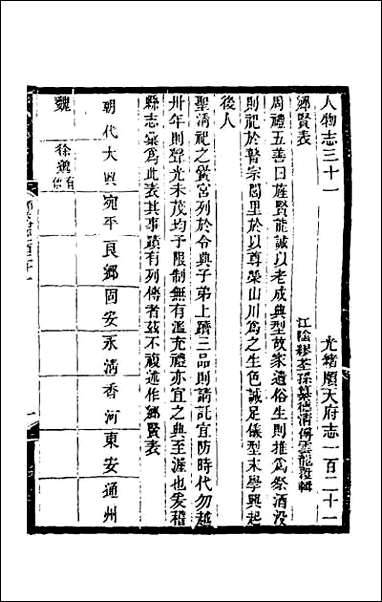 人物志三十一　光緒順天府志一百二十一
鄉賢表　江陰繆荃孫纂德清傅雲龍覆輯
周禮五善曰旌賢能誠以老成典型故家遺俗生則推爲祭酒没
則祀於瞽宗閭里於以尊榮山川爲之生色誠足儀型末學興起
後人
聖清祀之黌宮列於令典子弟上躋三品則請託宜防時代勿越
卅年則聲光未茂均予限制無有濫充禮亦宜之典至渥也爰稽
縣志彙爲此表其事蹟有列傳者茲不複述作鄉賢表
朝代　大興　宛平　良鄉　固安　永清　香河　東安　通州
魏　徐邈有傳